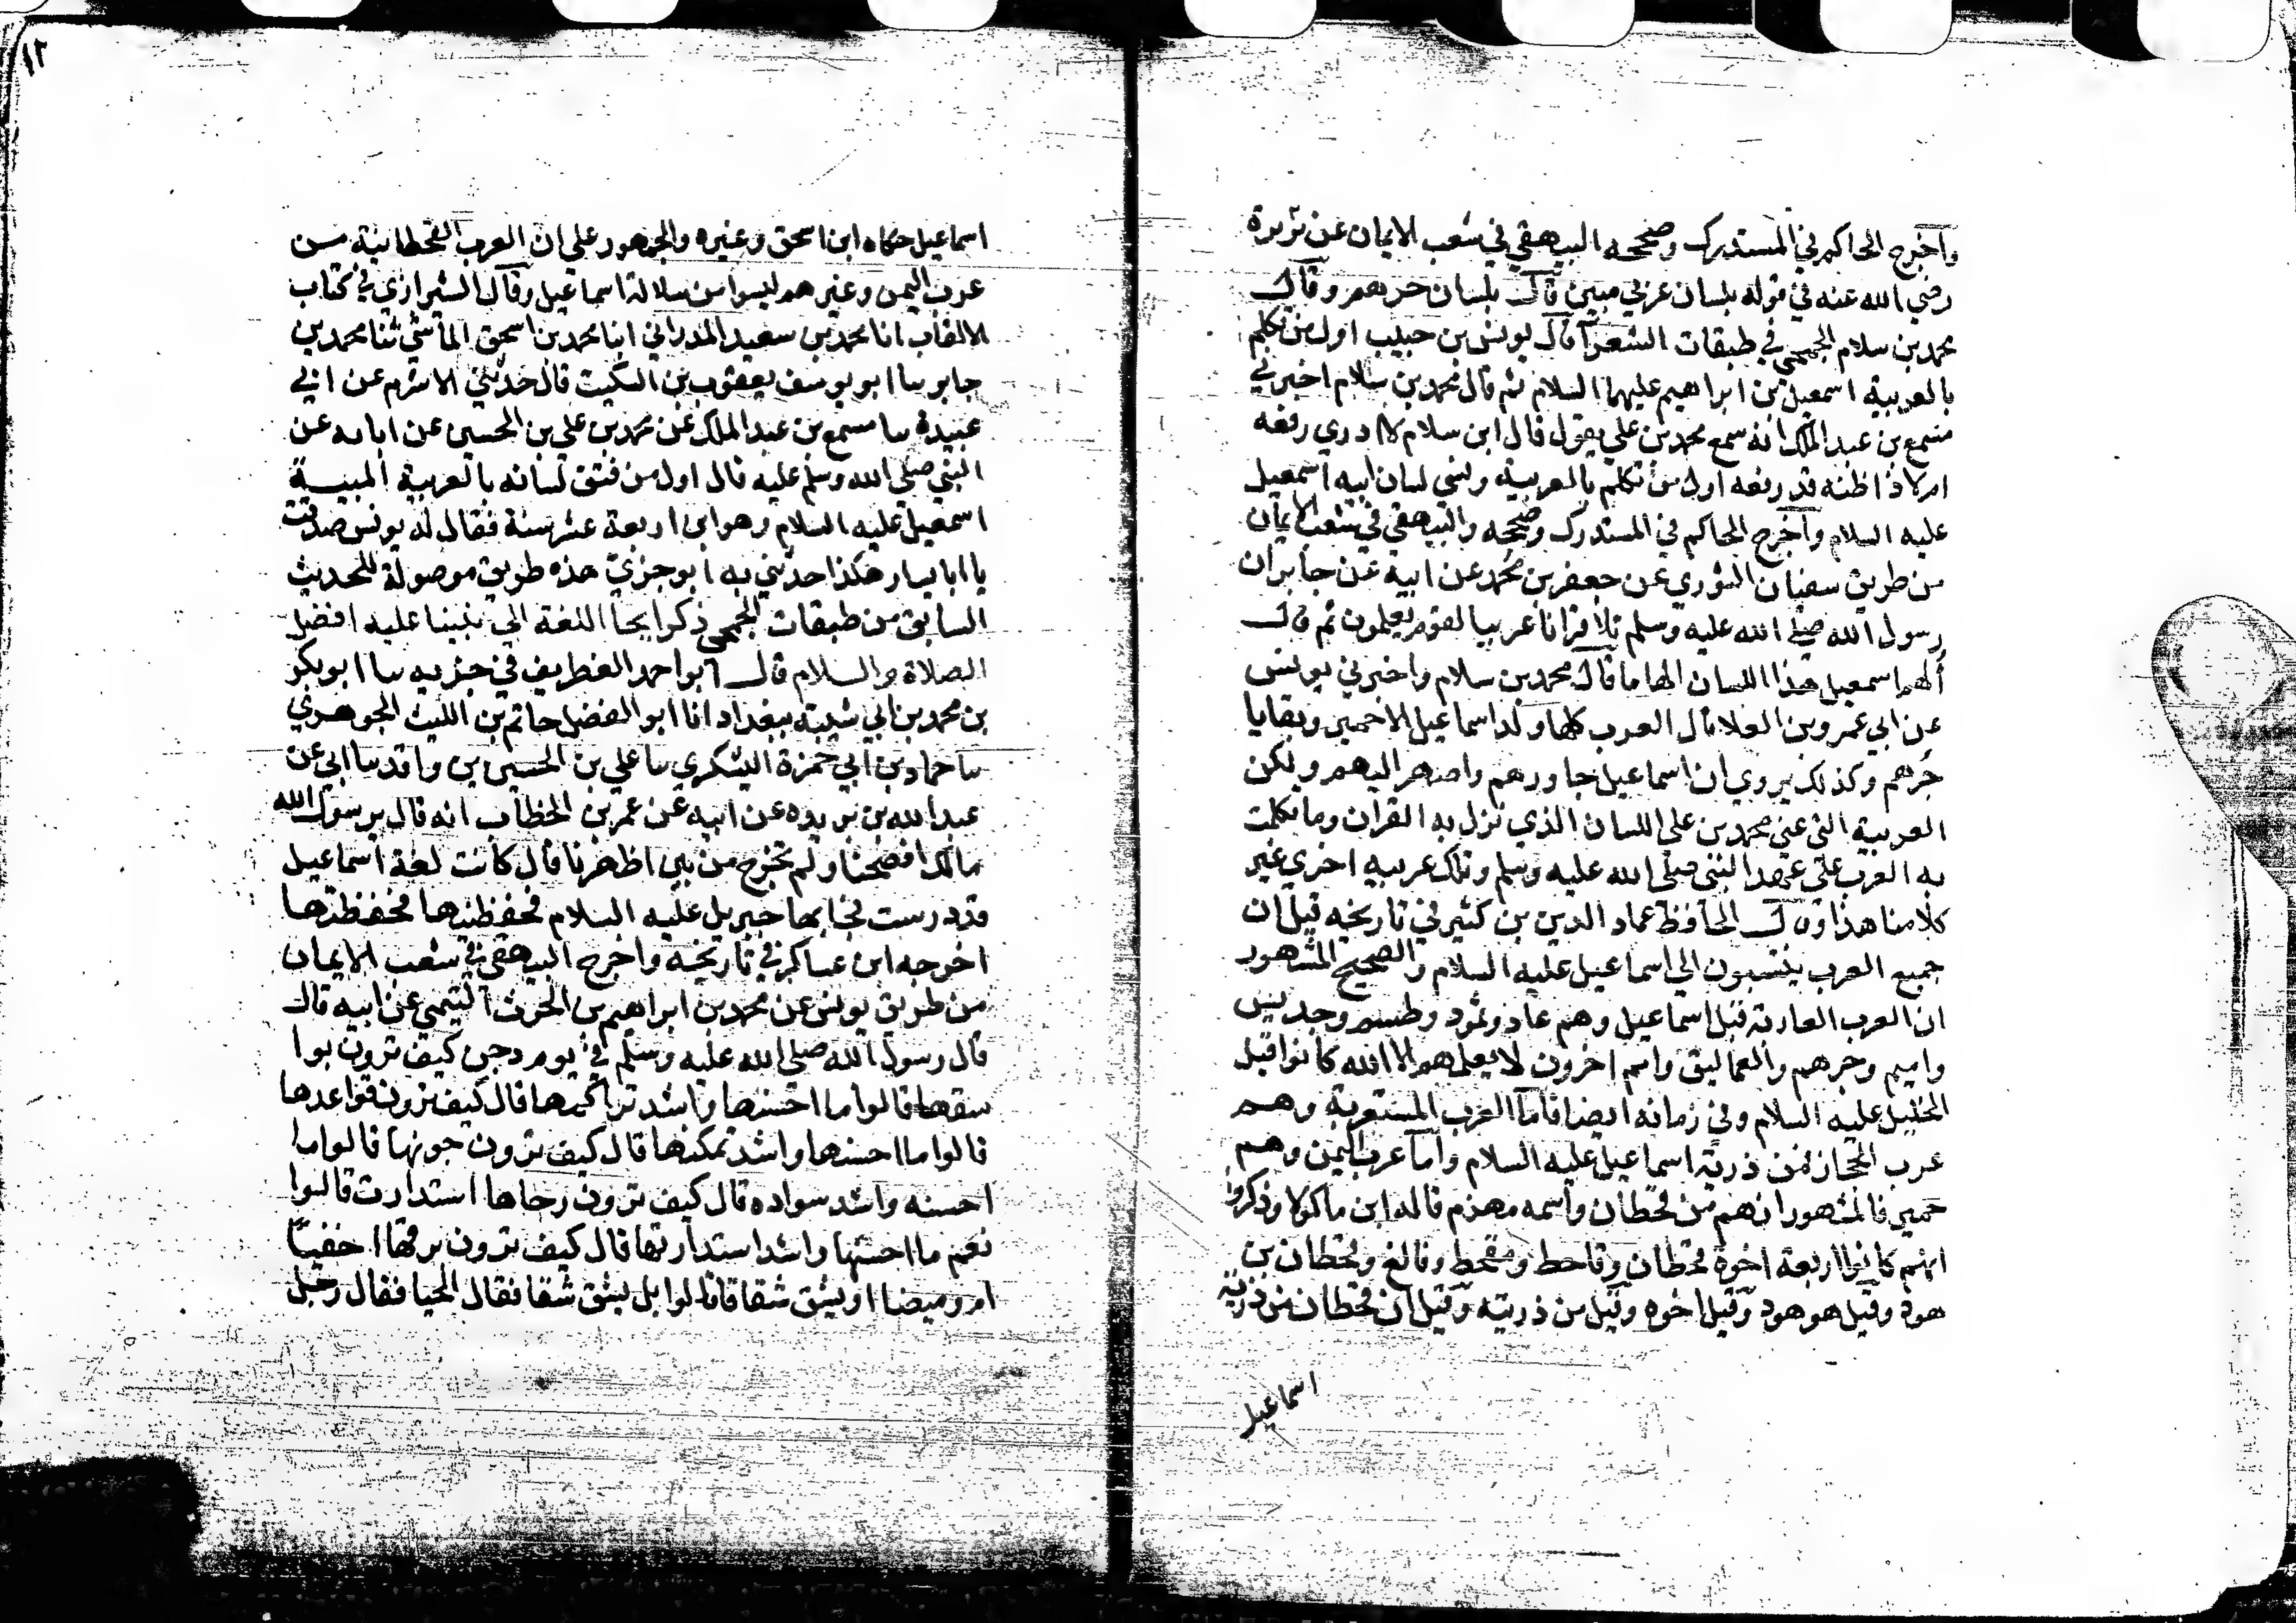 واخرج الحاكم في المستدرك وصححه البيهقي في شعب الايمان عن بريرة
رضي الله عنه في قوله بلسان عربي مبين قال بلسان جرهم وقال
محمد بن سلام الجمحي في طبقات الشعرآ قال يونس بن حبيب اول من تكلم
بالعربية اسمعيل بن ابراهيم عليهما السلام ثم قال محمد بن سلام اخبرني
مسمع بن عبد الملك انه سمع محمد بن علي يقول قال ابن سلام لا ادري رفعه
ام لا واظنه قد رفعه اول من تكلم بالعربية ونسي لسان ابيه اسمعيل
عليه السلام واخرج الحاكم في المستدرك وصححه والبيهقي في شعب الايمان
من طريق سفيان الثوري عن جعفر بن محمد عن ابيه عن جابر ان
رسول الله صلى الله عليه وسلم تلا قرانا عربيا لقوم يعلمون ثم قال
ألهم اسمعيل هذا اللسان الهاما قال محمد بن سلام واخبرني يونس
عن ابي عمرو بن العلا قال العرب كلها ولد اسماعيل الا حمير وبقايا
جرهم وكذلك يروي ان اسماعيل جاورهم واصهر اليهم ولكن
العربية التي عني محمد بن علي اللسان الذي نزل به القران وما تكلمت
به العرب على عهد النبي صلى الله عليه وسلم وتلك عربيه اخرى غير
كلامنا هذا وقال الحافظ عماد الدين بن كثير في تاريخه قيل ان
جميع العرب ينتسبون الى اسماعيل عليه السلام والصحيح المشهور
ان العرب العاربة قبل اسماعيل وهم عاد وثمود وطسم وجديس
واميم وجرهم والعماليق وامم اخرون لا يعلمهم الا الله كانوا قبل
الخليل عليه السلام وفي زمانه ايضا فاما العرب المستعربة وهم
عرب الحجاز فمن ذرية اسماعيل عليه السلام واما عرب اليمن وهم
حمير فالمشهور انهم من قحطان واسمه مهزم قاله ابن ماكولا وذكروا
انهم كانوا اربعة اخوة قحطان وقاحط ومقحط وفالغ وقحطان بن
هود وقيل هو هود وقيل اخوه وقيل من ذريته وقيل ان قحطان من ذرية
اسماعيل
١٢
اسماعيل حكاه ابن اسحق وغيره والجمهور على ان العرب القحطانية من
عرب اليمن وغيرهم ليسوا من سلالة اسماعيل وقال الشيرازي في كتاب
الالقاب انا محمد بن سعيد المدراني انا محمد بن اسحق الماشي ثنا محمد بن
جابر سا ابو يوسف يعقوب بن السكيت قال حدثني الاثرم عن ابي
عبيدة سا مسمع بن عبد الملك عن محمد بن علي بن الحسين عن ابايه عن
النبي صلى الله وسلم عليه قال اول من فتق لسانه بالعربية المبينة
اسمعيل عليه السلام وهو ابن اربعة عشر سنة فقال له يونس صدقت
يا ابا يسار هكذا حدثني به ابو جزي هذه طريق موصولة للحديث
السابق من طبقات الجمحي ذكر ايحا اللغة الي نبينا عليه افضل
الصلاة والسلام قال ابو احمد الغطريف في جزيه سا ابو بكر
بن محمد بن ابي شيبة ببغداد انا ابو الفضل حاتم بن الليث الجوهري
سا حماد بن ابي حمزة اليشكري سا علي بن الحسين بن واقد سا ابي عن
عبد الله بن بريده عن ابيه عن عمر بن الخطاب انه قال يرسول الله
مالك افصحنا ولم تخرج من بين اظهرنا قال كانت لغة اسماعيل
قد درست فجا بها جبريل عليه السلام فحفظنيها فحفظتها
اخرجه ابن عساكر في تاريخه واخرج البيهقي في شعب الايمان
من طريق يونس عن محمد بن ابراهيم بن الحرث التيمي عن ابيه قال
قال رسول الله صلى الله عليه وسلم في يوم دجن كيف ترون بوا
سقها قالوا ما احسنها واشد تراكمها قال كيف ترون قواعدها
قالوا ما احسنها واشد تمكنها قال كيف ترون جونها قالوا ما
احسنه واشد سواده قال كيف ترون رحاها استدارت قالوا
نعم ما احسنها واشد استدارتها قال كيف ترون برقها اخفيا
ام وميضا او يشق شقا قالوا بل يشق شقا فقال الحيا فقال رجل